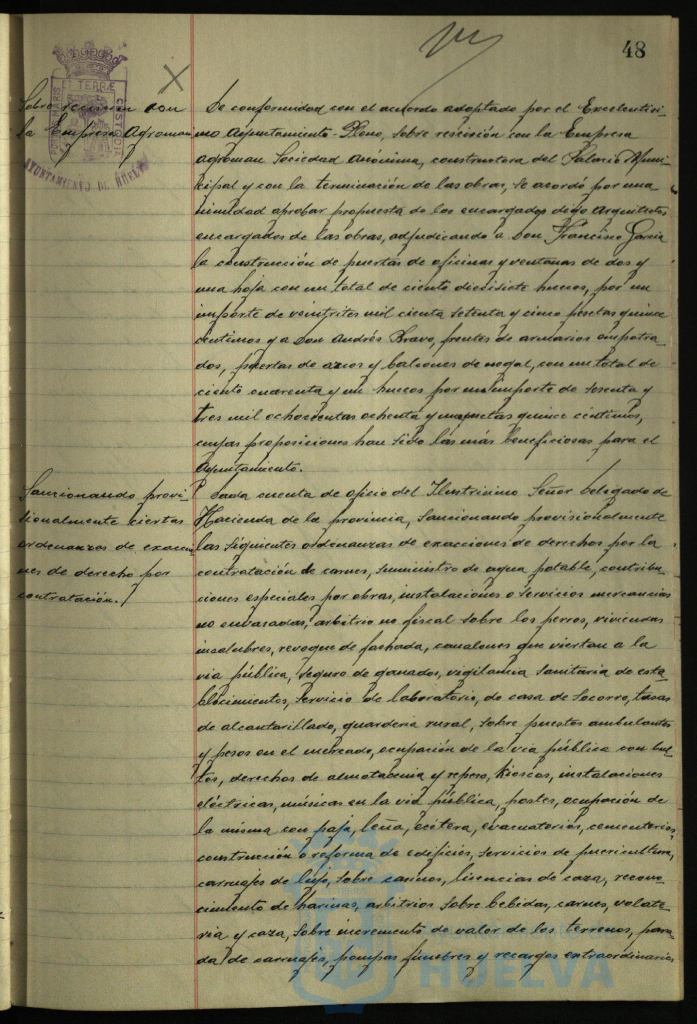 48
PORTUS MARIS
ET TERRÆ
CUSTODIA
AYUNTAMIENTO DE HUELVA
Sobre rescision con
la Empresa Agroman
De conformidad con el acuerdo adoptado por el Excelentisi-
mo Ayuntamiento-Pleno, sobre rescisión con la Empresa
Agroman Sociedad Anónima, constructora del Palacio Muni-
cipal y con la terminación de las obras, se acordó por una-
nimidad aprobar propuesta de los encargados digo Arquitectos
encargados de las obras, adjudicando a Don Francisco García
la construcción de puertas de oficinas y ventanas de dos y
una hoja con un total de ciento diecisiete huecos, por un
importe de veintitres mil cienta setenta y cinco pesetas quince
centimos y a Don Andrés Bravo, frentes de armarios empotra-
dos, puertas de arcos y balcones de nogal, con un total de
ciento cuarenta y un huecos por un importe de sesenta y
tres mil ochocientas ochenta y pesetas quince céntimos,
cuyas proposiciones han sido las más beneficiosas para el
Ayuntamiento.
Sancionando provi-
sionalmente ciertas
ordenanzas de exaccio-
nes de derecho por
contratación.
Dada cuenta de oficio del Ilustrisimo Señor Delegado de
Hacienda de la provincia, sancionando provisionalmente
las siguientes ordenanzas de exacciones de derechos por la
contratación de carnes, suministro de agua potable, contribu-
ciones especiales por obras, instalaciones o servicios mercancias
no envasadas, arbitrio no fiscal sobre los perros, viviendas
insalubres, revoque de fachada, canalones que viertan a la
via pública, seguro de ganados, vigilancia sanitaria de esta-
blecimientos, servicio de laboratorio, de casa de socorro, tasas
de alcantarillado, guardería rural, sobre puestos ambulantes
y pesos en el mercado, ocupación de la via pública con bul-
tos, derechos de almotacenia y repeso, kioscos, instalaciones
eléctricas, músicas en la via pública, postes, ocupación de
la misma con paja, leña, ecétera, evacuatorios, cementerios,
construcción o reforma de edificios, servicios de puericultura,
carruajes de lujo, sobre casinos, licencias de caza, recono-
cimiento de harinas, arbitrios sobre bebidas, carnes, volate-
ria y caza, sobre incremento de valor de los terrenos, para-
da de carruajes, pompas fúnebres y recargos extraordinarios
HUELVA